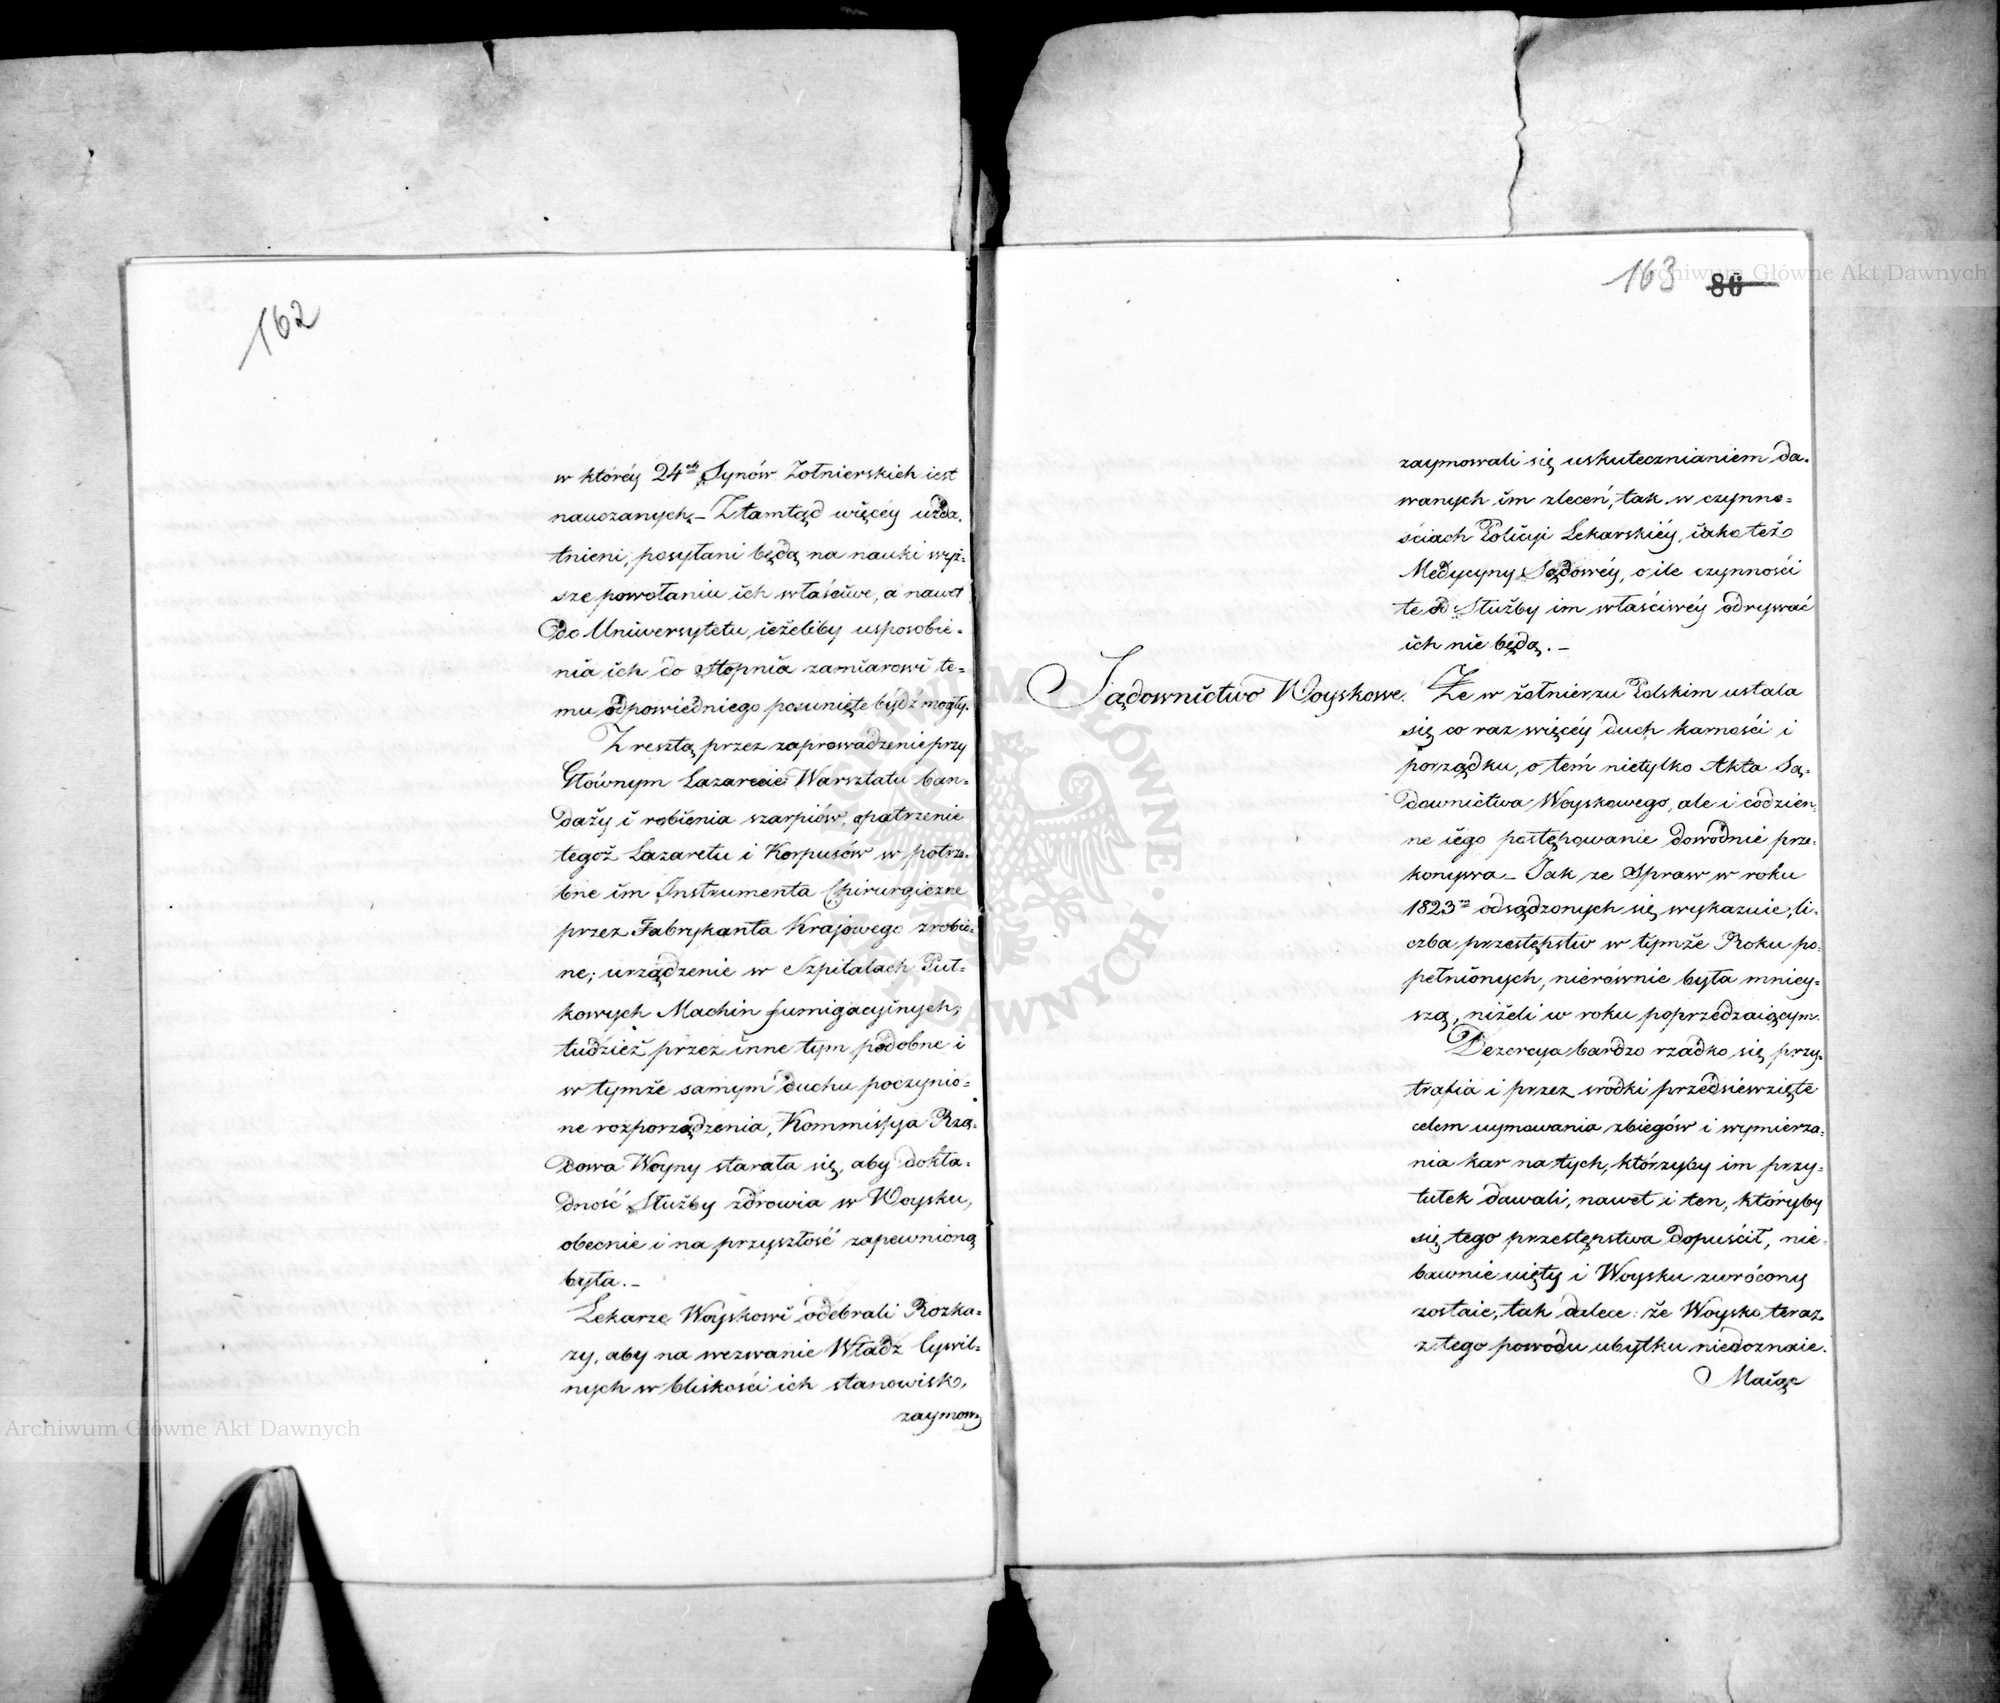 162
w któréy 24ch Synów Żołnierskich iest
nauczanych. – Ztamtąd więcéy uzda-
tnieni, posyłani będą na nauki wyż-
sze powołaniu ich właściwe, a nawet
do Uniwersytetu, ieżeliby usposobie-
nia ich do stopnia zamiarowi te-
mu odpowiedniego posunięte bydź mogły.
Zresztą przez zaprowadzenie przy
Głównym Lazarecie Warsztatu ban-
daży i robienia szarpiów, opatrzenie
tegoż Lazaretu i Korpusów w potrze-
bne im Instrumenta Chirurgiczne
przez Fabrykanta Krajowego zrobio-
ne; urządzenie w Szpitalach Puł-
kowych Machin fumigacyinych,
tudzież przez inne tym podobne i
w tymże samym duchu poczynio-
ne rozporządzenia, Kommissya Rzą-
dowa Woyny starała się, aby dokła-
dność Służby zdrowia w Woysku,
obecnie i na przyszłość zapewnioną
była. –
Lekarze Woyskowi odebrali Rozka-
zy, aby na wezwanie Władz Cywil-
nych w bliskości ich stanowisk,
zaymow
163 86
zaymowali się uskutecznianiem da-
wanych im zleceń, tak w czynno-
ściach Policyi Lekarskiéy, iako też
Medycyny Sądowéy, o ile czynności
te od Służby im właściwéy odrywać
ich nie będą. –
Sądownictwo Woyskowe. Że w żołnierzu Polskim ustala
się co raz więcéy duch karności i
porządku, o tem nietylko Akta Są-
downictwa Woyskowego, ale i codzien-
ne iego postępowanie dowodnie prze-
konywa – Jak ze Spraw w roku
1823m odsądzonych się wykazuie, li-
czba przestępstw w tymże Roku po-
pełnionych, nierównie była mniey-
szą, niżeli w roku poprzedzaiącym.
Dezercya bardzo rzadko się przy-
trafia i przez srodki przedsiewzięte
celem uymowania zbiegów i wymierza-
nia kar na tych, którzyby im przy-
tułek dawali, nawet i ten, któryby
się tego przestępstwa dopuścił, nie-
bawnie uięty i Woysku zwrócony
zostaie, tak dalece: że Woysko teraz
z tego powodu ubytku niedoznaie.
Maiąc
Archiwum Główne Akt Dawnych
Archiwum Główne Akt Dawnych